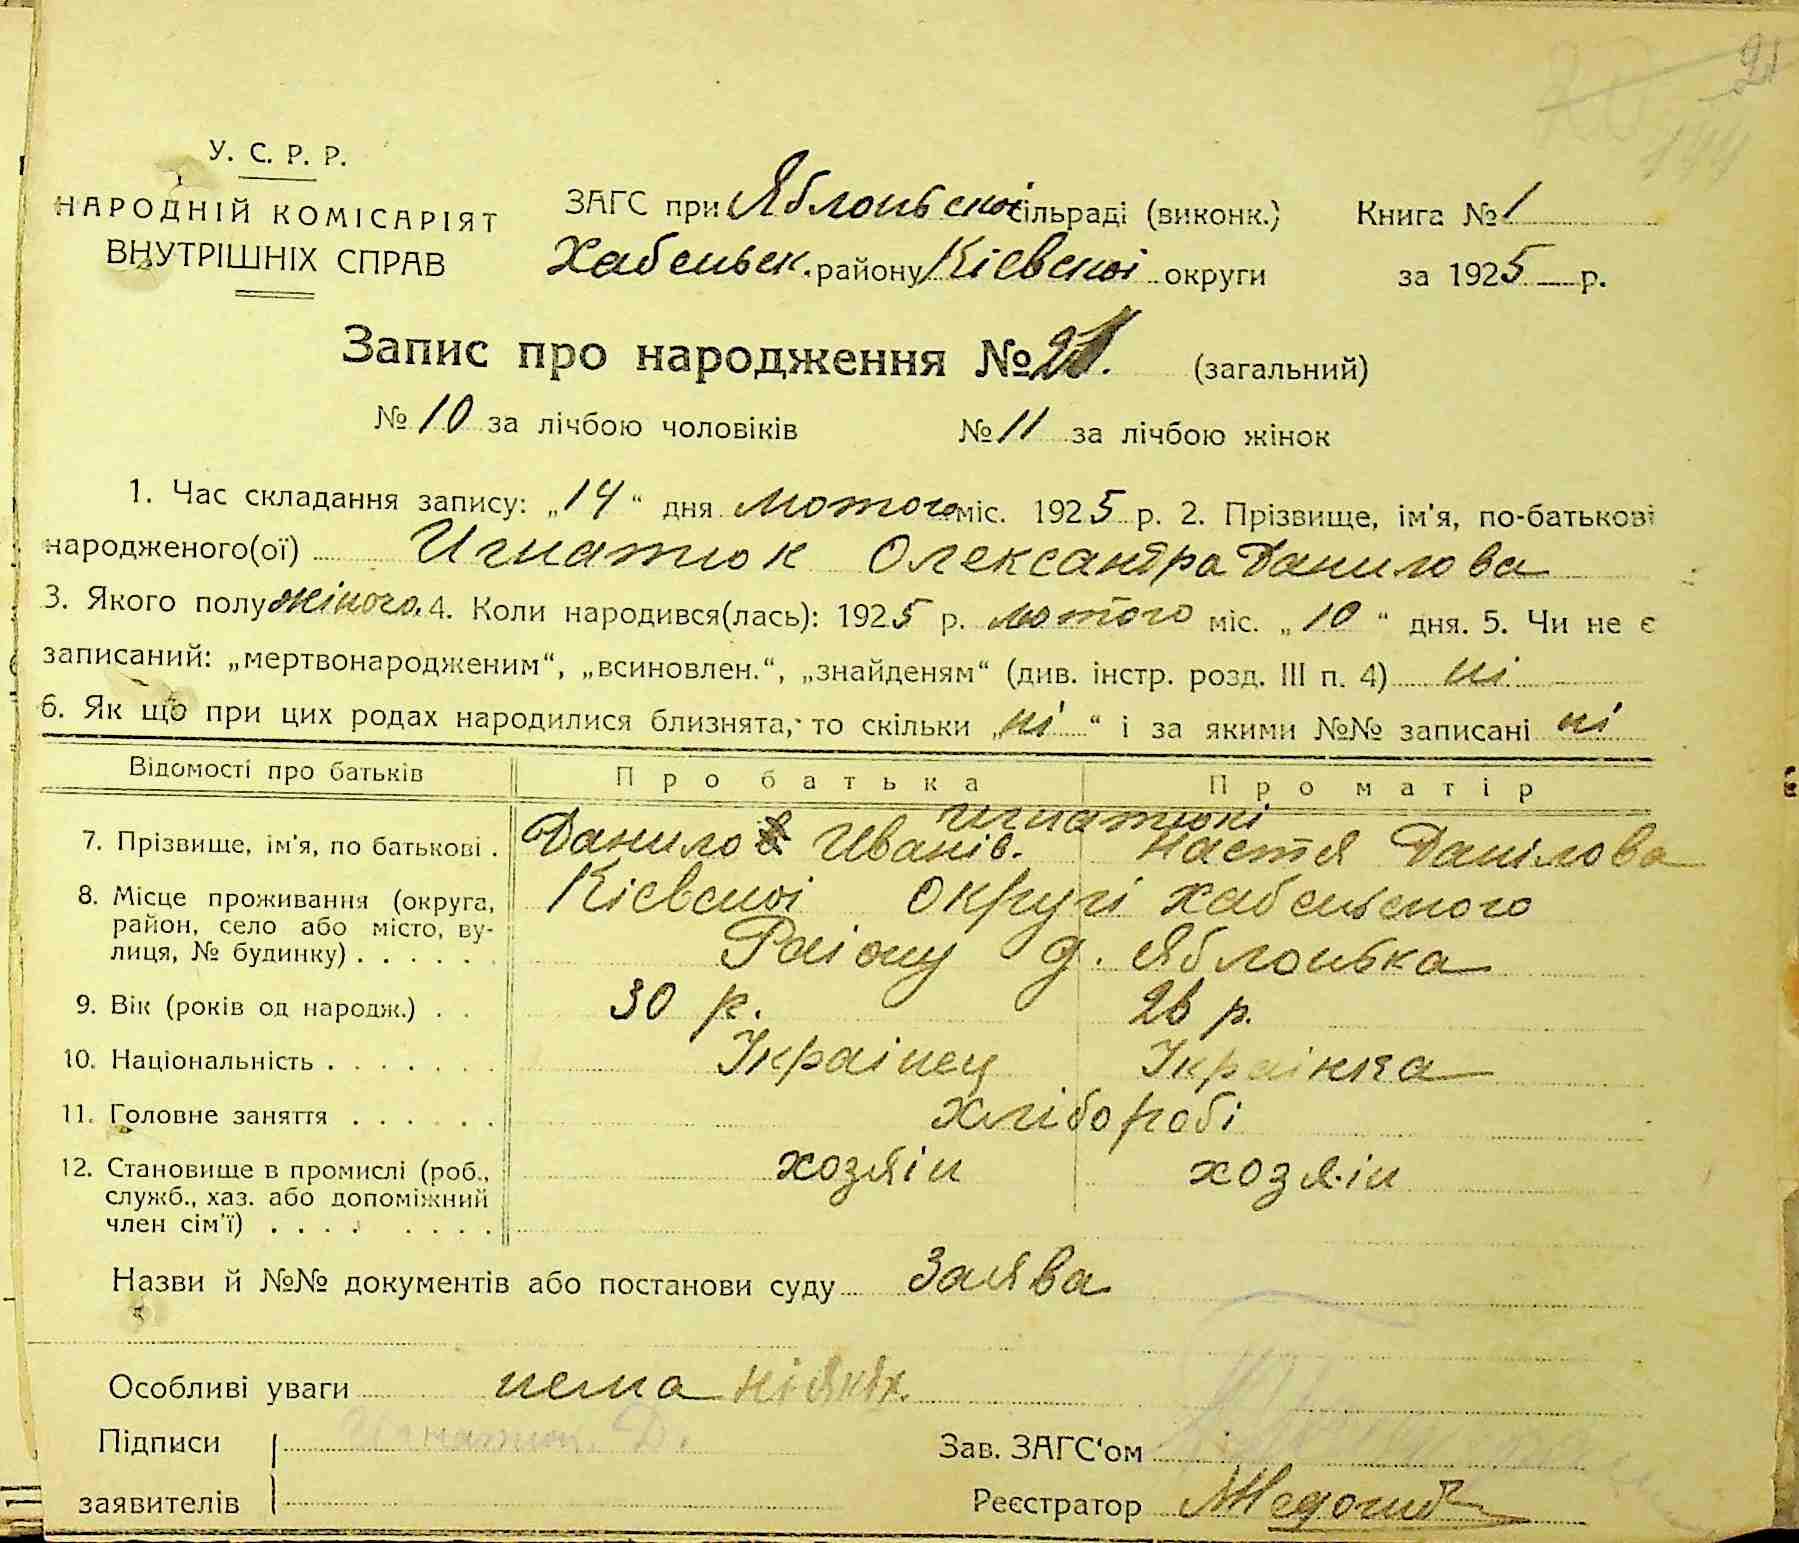 21
144
У. С. Р. Р.
НАРОДНІЙ КОМІСАРІЯТ
ВНУТРІШНІХ СПРАВ
ЗАГС при Яблоньскої сільраді (виконк.) Книга № 1
Хабеньск. району Кієвскої округи за 1925 р.
Запис про народження № 21. (загальний)
№ 10 за лічбою чоловіків № 11 за лічбою жінок
1. Час складання запису: „14“ дня лютого міс. 1925 р. 2. Прізвище, ім'я, по-батькові
народженого(ої) Игнатюк Олександра Данилова
3. Якого полу жіного. 4. Коли народився(лась): 1925 р. лютого міс. „10“ дня. 5. Чи не є
записаний: „мертвонародженим“, „всиновлен.“, „знайденям“ (див. інстр. розд. III п. 4) ні
6. Як що при цих родах народилися близнята, то скільки „ні“ і за якими №№ записані ні
Відомості про батьків Про батька Про матір
Игнатюкі
7. Прізвище, ім'я, по батькові . Данило Иванів. Настя Данілова
8. Місце проживання (округа, Кієвскої округі Хабеньского
район, село або місто, ву- Раіону д. Яблонька
лиця, № будинку) . . . . . .
9. Вік (років од народж.) . . 30 р. 26 р.
10. Національність . . . . . . . Українец Українка
11. Головне заняття . . . . . . хліборобі
12. Становище в промислі (роб., хозяін хозяін
служб., хаз. або допоміжний
член сім'ї) . . . . . . . .
Назви й №№ документів або постанови суду Заява
Особливі уваги нема ніякіх.
Підписи Игнатюк. Д. Зав. ЗАГС'ом
заявителів Реєстратор